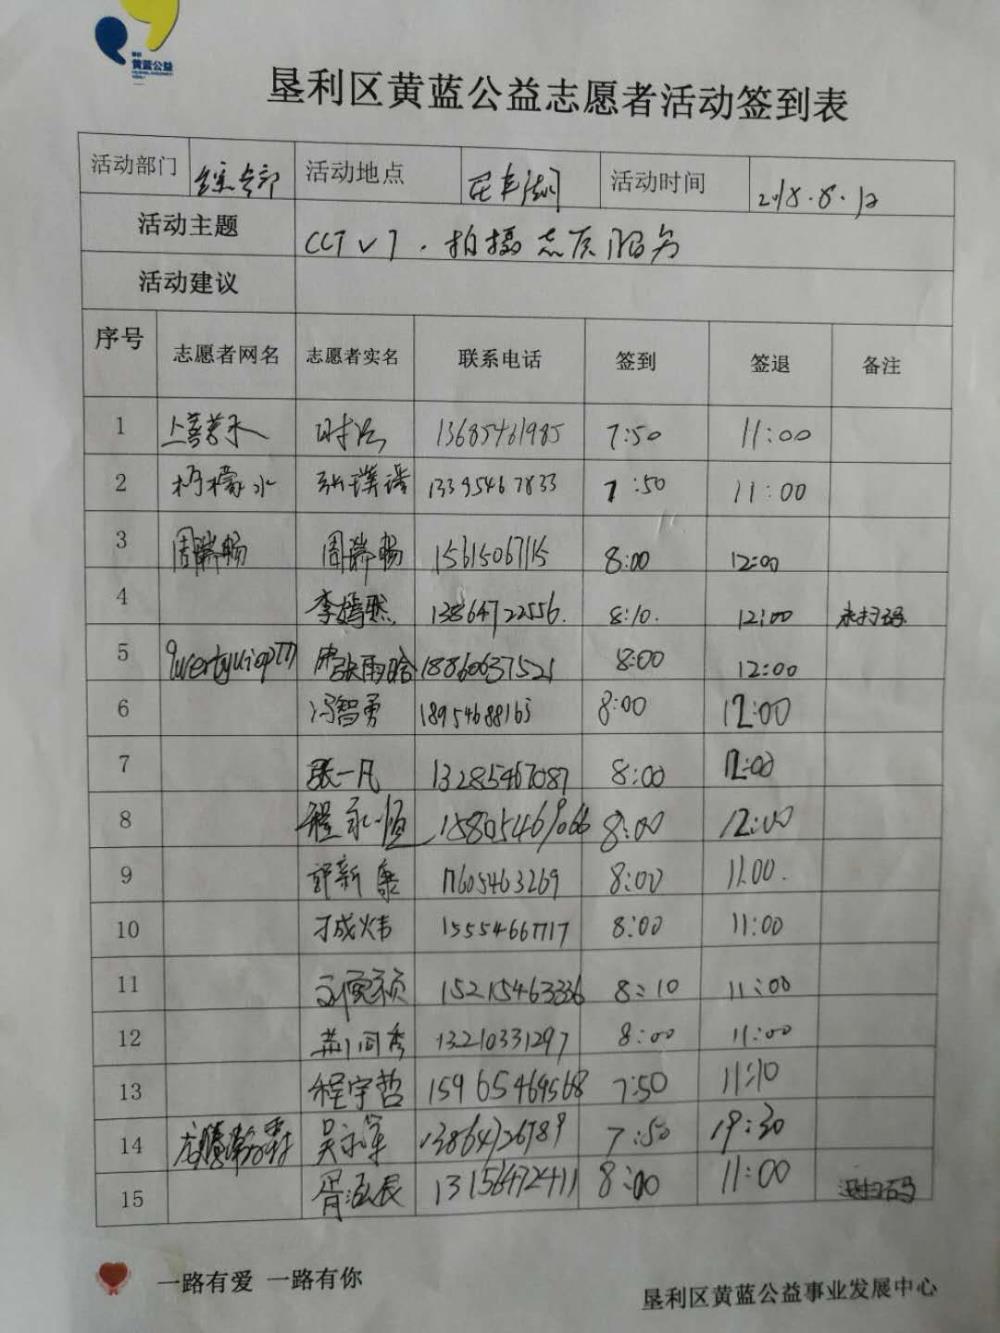 黄蓝公益
垦利区黄蓝公益志愿者活动签到表
活动部门 活动地点 民丰湖 活动时间 2018.8.12
活动主题 CCTV7.拍摄志愿服务
活动建议
序号 志愿者网名 志愿者实名 联系电话 签到 签退 备注
1 上善若水 13685461985 7:50 11:00
2 柠檬水 张璞谣 13395467833 7:50 11:00
3 周瑞畅 周瑞畅 15615067115 8:00 12:00
4 李嫣熙 13864722556. 8:10. 12:00 未扫码
5 qwertyuiop 张雨晗 18860637521 8:00 12:00
6 冯智勇 18954688163 8:00 12:00
7 张一凡 13285467087 8:00 12:00
8 程永恒 15805469066 8:00 12:00
9 新康 17605463269 8:00 11:00.
10 成炜 15554667717 8:00 11:00
11 15215463336 8:10 11:00
12 13210331297 8:00 11:00
13 程宇哲 15965469568 7:50 11:10
14 龙腾瀚霖 吴永军 13864726789 7:50 19:30
15 胥泓辰 13156472411 8:00 11:00 没扫码
一路有爱 一路有你
垦利区黄蓝公益事业发展中心